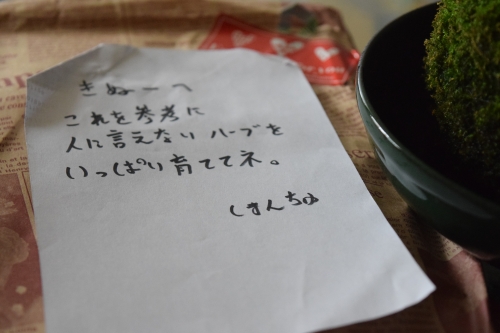 きぬーへ
これを参考に
人に言えないハーブを
いっぱい育ててネ。
しまんちゅ